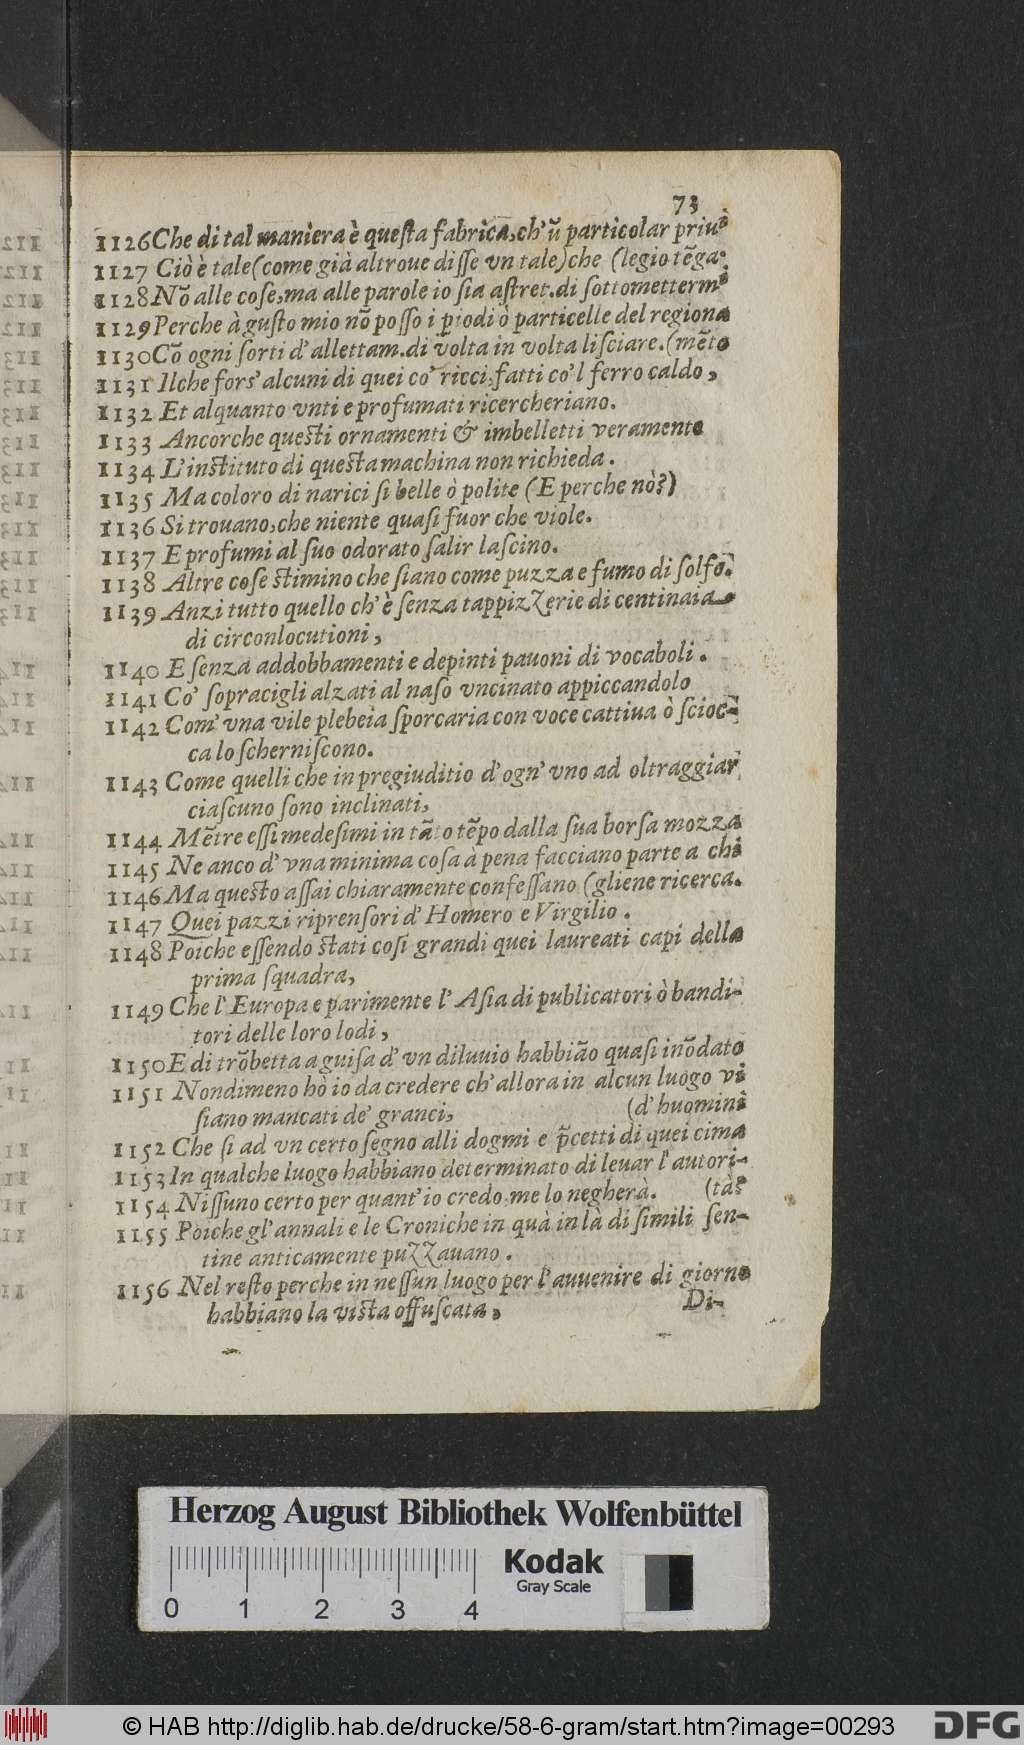 73
1126 Che di tal maniera è questa fabrica, ch'ũ particolar priui
1127 Ciò è tale (come già altroue disse vn tale) che (legio tẽga.
1128 Nõ alle cose, ma alle parole io sia astret. di sottometterm
1129 Perche à gusto mio nõ posso i piodi ò particelle del regiona
1130 Cõ ogni sorti d'allettam. di volta in volta lisciare. (mẽto
1131 Ilche fors' alcuni di quei co' ricci, fatti co'l ferro caldo,
1132 Et alquanto vnti e profumati ricercheriano.
1133 Ancorche questi ornamenti & imbelletti veramente
1134 L'instituto di questa machina non richieda.
1135 Ma coloro di narici si belle ò polite (E perche nò?)
1136 Si trouano, che niente quasi fuor che viole.
1137 E profumi al suo odorato salir lascino.
1138 Altre cose stimino che siano come puzza e fumo di solfo.
1139 Anzi tutto quello ch'è senza tappizzerie di centinaia
di circonlocutioni,
1140 E senza addobbamenti e depinti pauoni di vocaboli.
1141 Co' sopracigli alzati al naso vncinato appiccandolo
1142 Com' vna vile plebeia sporcaria con voce cattiua ò scioc-
ca lo scherniscono.
1143 Come quelli che in pregiuditio d'ogn' vno ad oltraggiar
ciascuno sono inclinati,
1144 Mẽtre essi medesimi in tãto tẽpo dalla sua borsa mozza
1145 Ne anco d'vna minima cosa à pena facciano parte a chi
1146 Ma questo assai chiaramente confessano (gliene ricerca.
1147 Quei pazzi riprensori d'Homero e Virgilio.
1148 Poiche essendo stati cosi grandi quei laureati capi della
prima squadra,
1149 Che l'Europa e parimente l'Asia di publicatori ò bandi-
tori delle loro lodi,
1150 E di trõbetta a guisa d'vn diluuio habbião quasi inõdato
1151 Nondimeno hò io da credere ch'allora in alcun luogo vi
siano mancati de' granci, (d'huomini
1152 Che si ad vn certo segno alli dogmi e p̃cetti di quei cima
1153 In qualche luogo habbiano determinato di leuar l'autori-
1154 Nissuno certo per quant'io credo me lo negherà. (tà?
1155 Poiche gl'annali e le Croniche in quà in là di simili sen-
tine anticamente puzzauano.
1156 Nel resto perche in nessun luogo per l'auuenire di giorno
habbiano la vista offuscata, Di-
Herzog August Bibliothek Wolfenbüttel
Kodak
Gray Scale
0 1 2 3 4
© HAB http://diglib.hab.de/drucke/58-6-gram/start.htm?image=00293
DFG